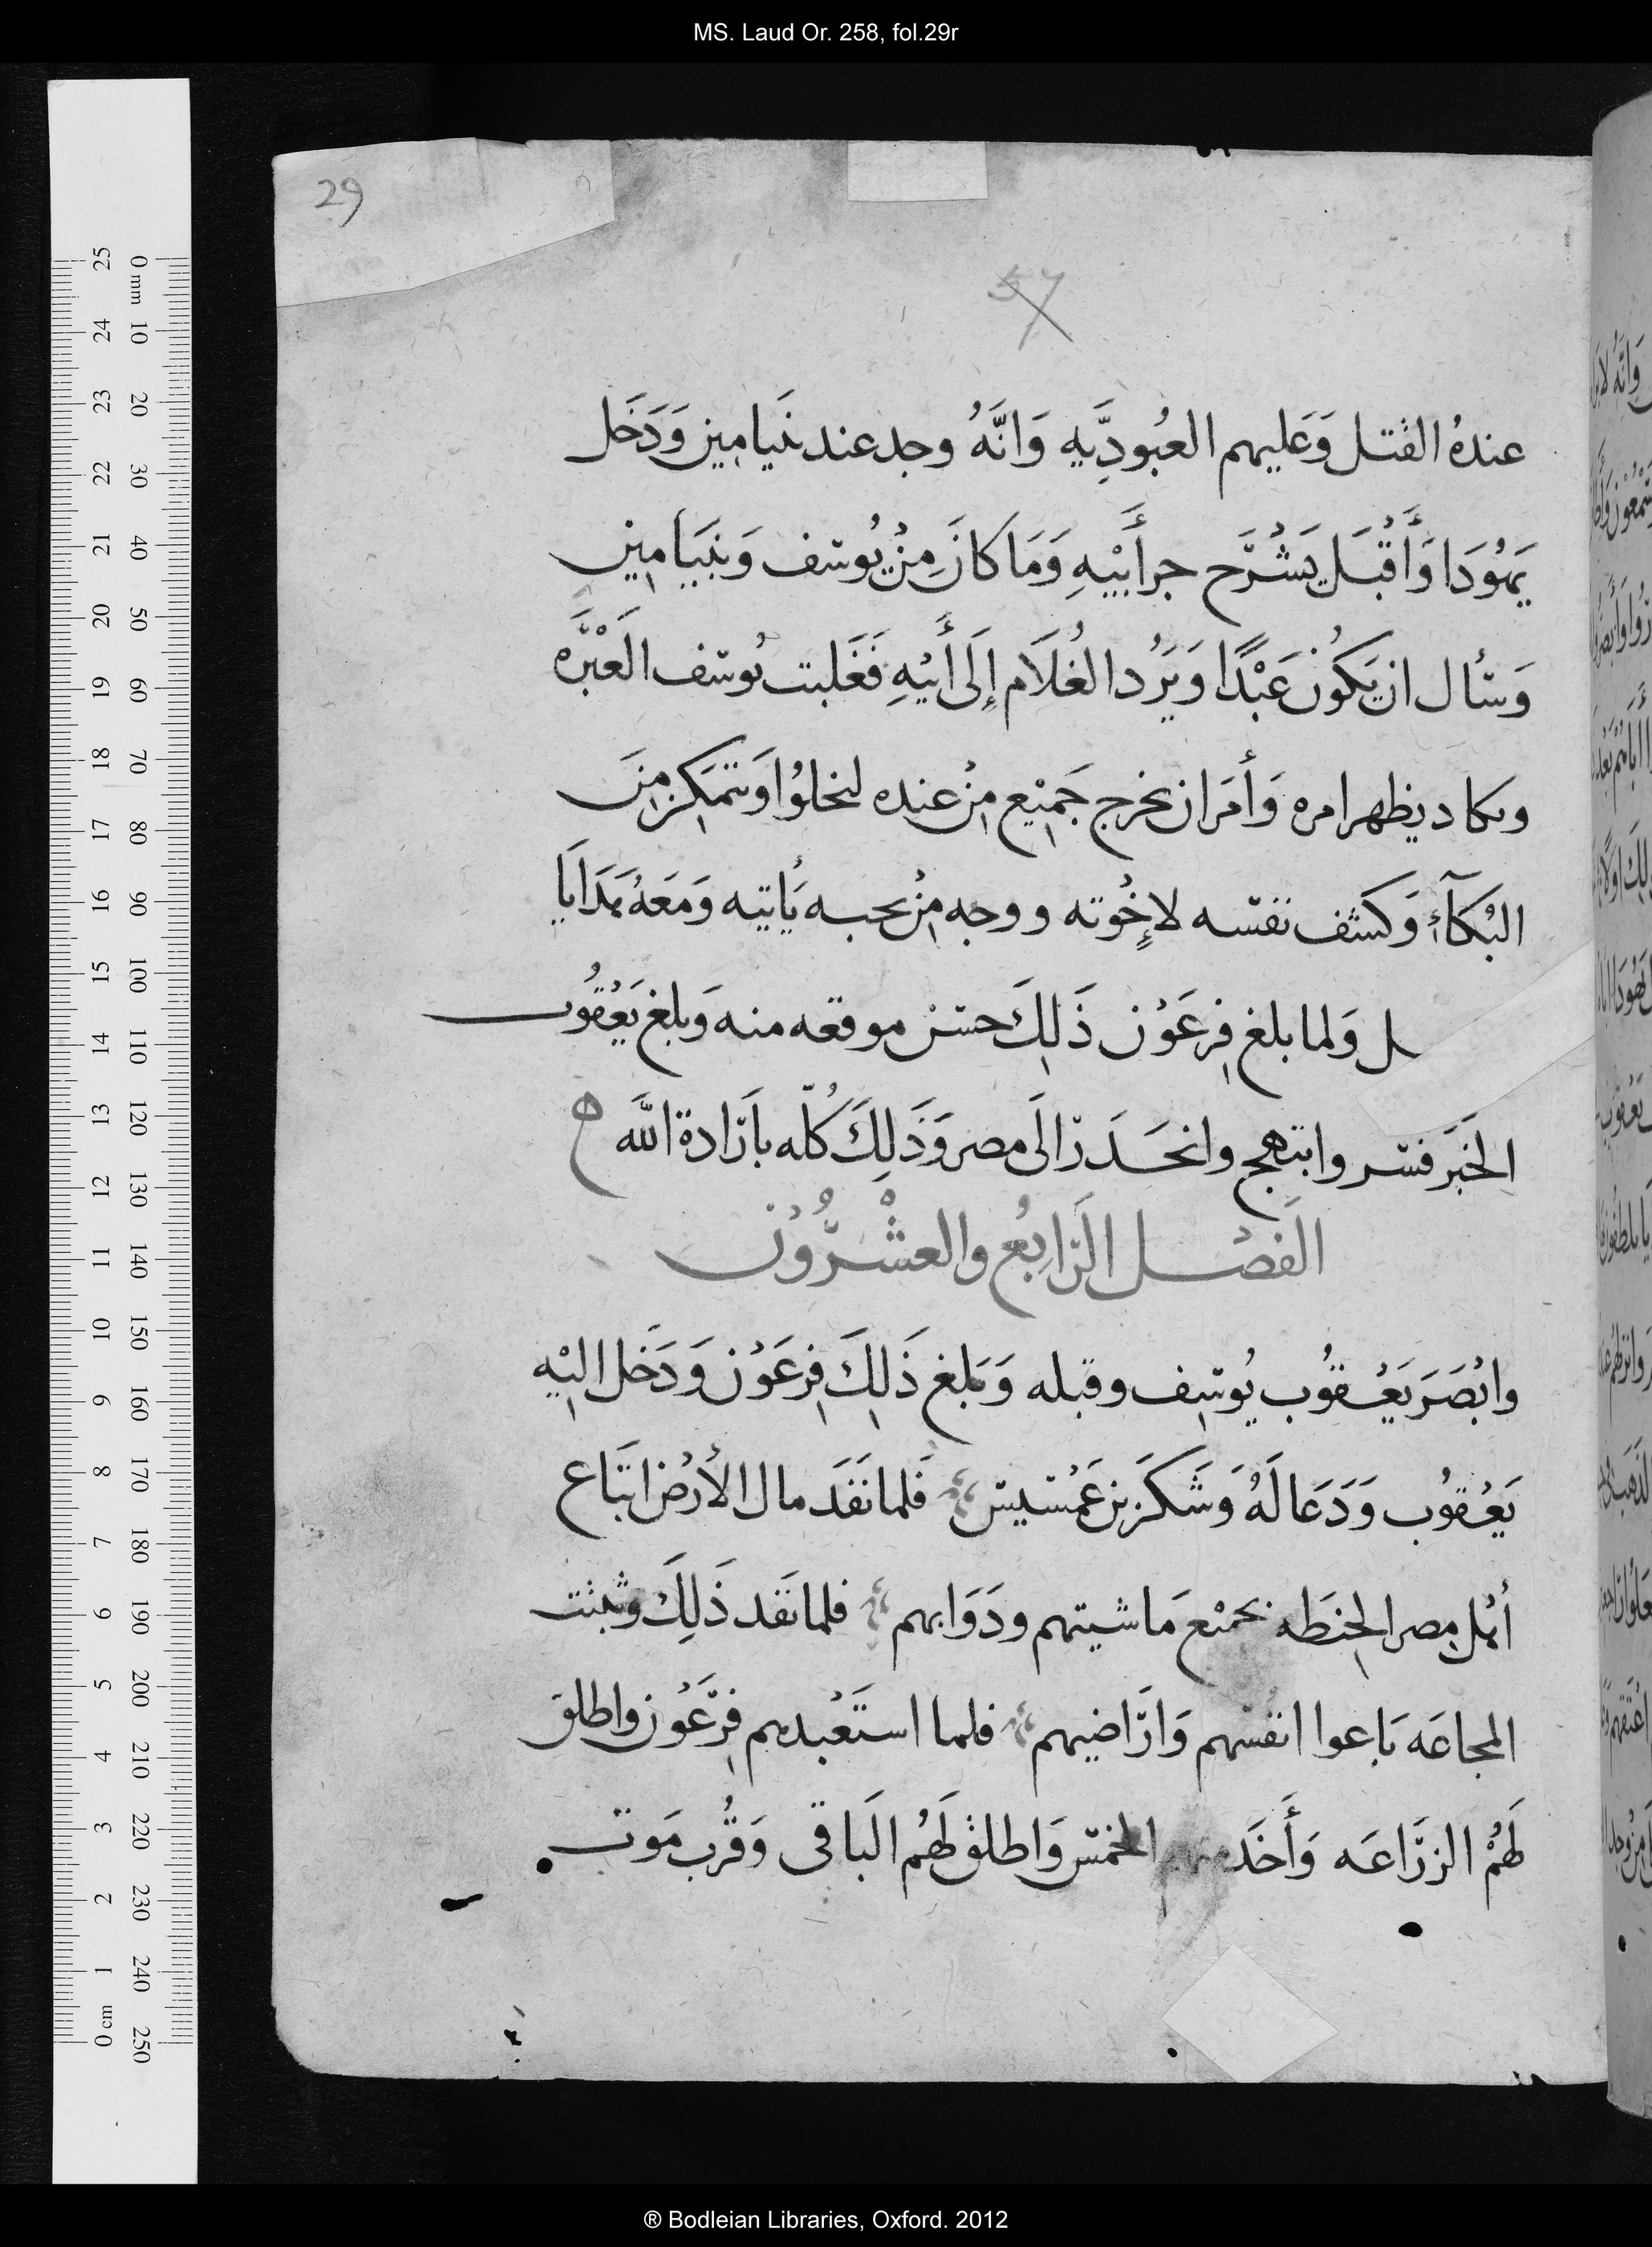 MS. Laud Or. 258, fol.29r
29
57
عندهُ القتل وَعَليهم العُبُودِّيه وَانَّهُ وجد عند بنَيامين وَدَخَل
يَهُوُدَا وَأَقْبَل يَشْرَّح جرأَبيْهِ وَمَا كَانَ مِنْ يُوسف وَبنيَامين
وَسأل ان يَكُون عَبْدًا وَيَرُد الغُلَام إِلَى أَبيْهِ فَغَلبت يُوسف العَبْرَه
وكاد يظهر امره وَأمَرَ ان يخرج جَميْع مِنْ عنده ليخلوُا وَيتَمَكن مِنَ
البُكَآءِ وَكشف نفسه لاخُوته ووجه مِنْ يحبه يَأتيه وَمَعَهُ هَدَايَا
ل وَلما بلغ فِرعَوْن ذَلِكَ حسن موقعه منه وَبلغ يَعْقوُب
الخَبَر فسر وابتهج وانحَدَر الَى مصر وَذَلِكَ كُلّه بارَادة اللَّه
الفَصْل الرَابِعُ والعشْرُون
وابْصَرَ يَعْقوُب يُوسِف وقبله وَبَلغ ذَلِكَ فِرعَوْن وَدَخل اليْهِ
يَعْقوُب وَدَعَا لَهُ وَشَكَرَ بن عَمْسيس فَلما نَفَدَ مال الأرْض ابتَاع
أهل مصر الحِنطَه بجميْعَ مَاشيتهم ودَوَابهم فلما نَفَد ذَلِكَ وثبتت
المجاعَه بَاعوا انفسهم وَارَاضيهم فلما استَعْبدهم فِرعَوْن واطلق
لَهُمْ الزرَاعَه وَأَخَد منهم الخمس وَاطلق لَهُم البَاقى وَقُرب مَوت
® Bodleian Libraries, Oxford. 2012